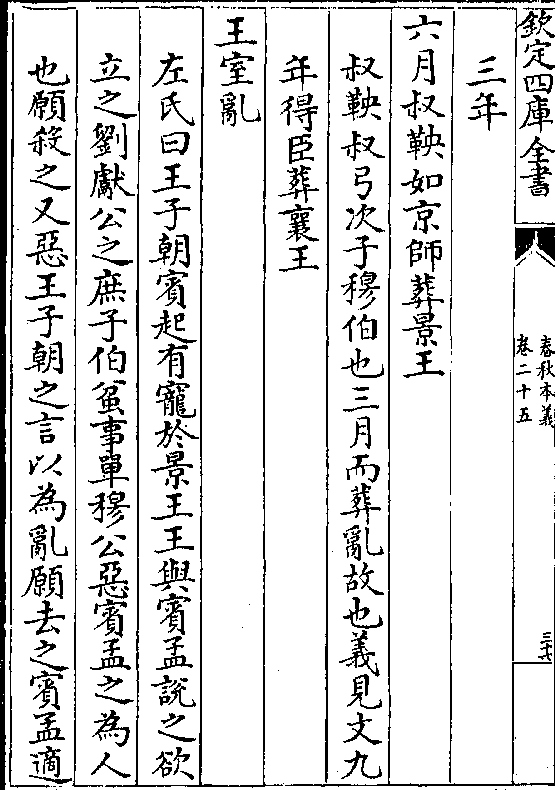 欽定四庫全書
春秋本義
卷二十五
三年
六月叔鞅如京師葬景王
叔鞅叔弓次子穆伯也三月而葬亂故也義見文九
年得臣葬襄王
王室亂
左氏曰王子朝賓起有寵於景王王與賓孟說之欲
立之劉獻公之庶子伯蚠事單穆公惡賓孟之為人
也願殺之又惡王子朝之言以為亂願去之賓孟適